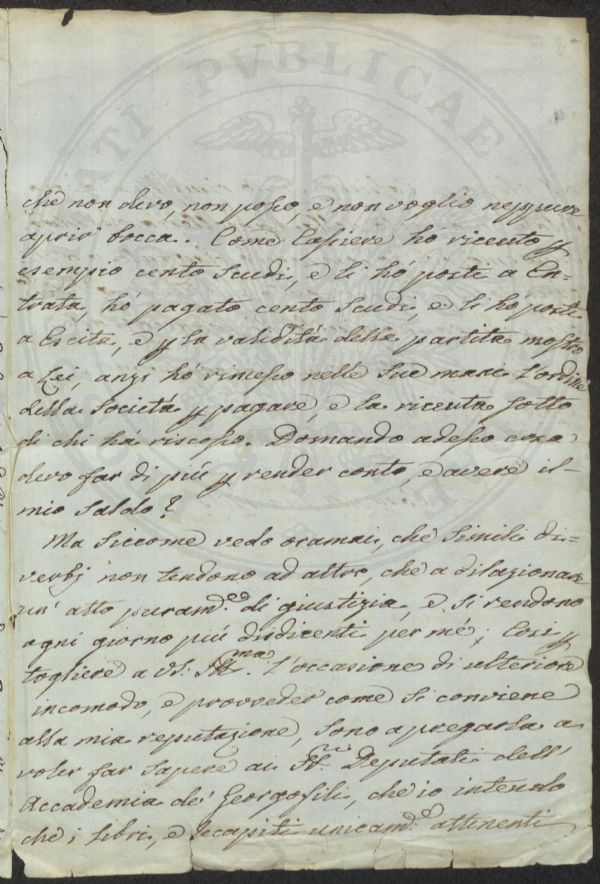 chè non devo, non posso, e non voglio neppure
aprir bocca.. Come Cassiere hò ricevuto p
esempio cento Scudi, e li hò posti a En-
trata, hò pagato cento Scudi, e li hò posti
a Escita, e p la validità delle partite mostro
a Lei, anzi hò rimesso nelle Sue mani l'ordine
della Società p pagare, e la ricevuta sotto
di chi hà riscosso. Domando adesso cosa
devo far di più p render conto, e avere il
mio Saldo?
Ma siccome vedo oramai, che simili di-
verbj non tendono ad altro, che a dilazionare
un' atto puram.e di giustizia, e si rendono
ogni giorno più disdicenti per mè; Così p
togliere a VS. Ill.ma l'occasione di ulteriore
incomodo, e provveder come si conviene
alla mia reputazione, sono a pregarla a
voler far sapere ai SS.ri Deputati dell'
Accademia de' Georgofili, che io intendo
che i libri, e recapiti unicam.e attinenti